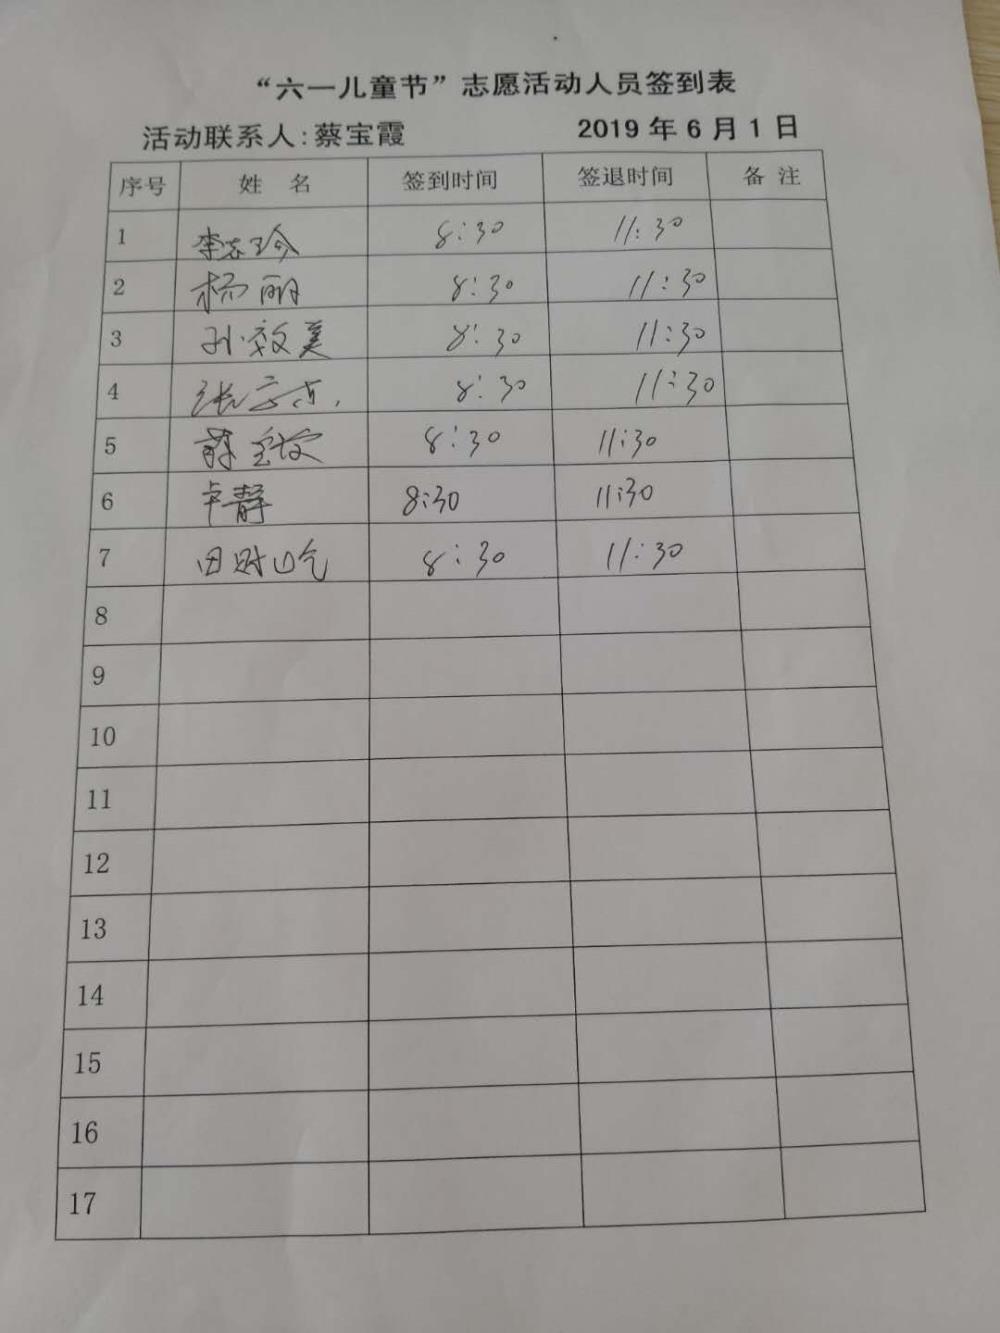 “六一儿童节”志愿活动人员签到表
活动联系人:蔡宝霞 2019年6月1日
序号 姓 名 签到时间 签退时间 备 注
1 8:30 11:30
2 杨丽 8:30 11:30
3 孙效美 8:30 11:30
4 8:30 11:30
5 8:30 11:30
6 卢静 8:30 11:30
7 8:30 11:30
8
9
10
11
12
13
14
15
16
17